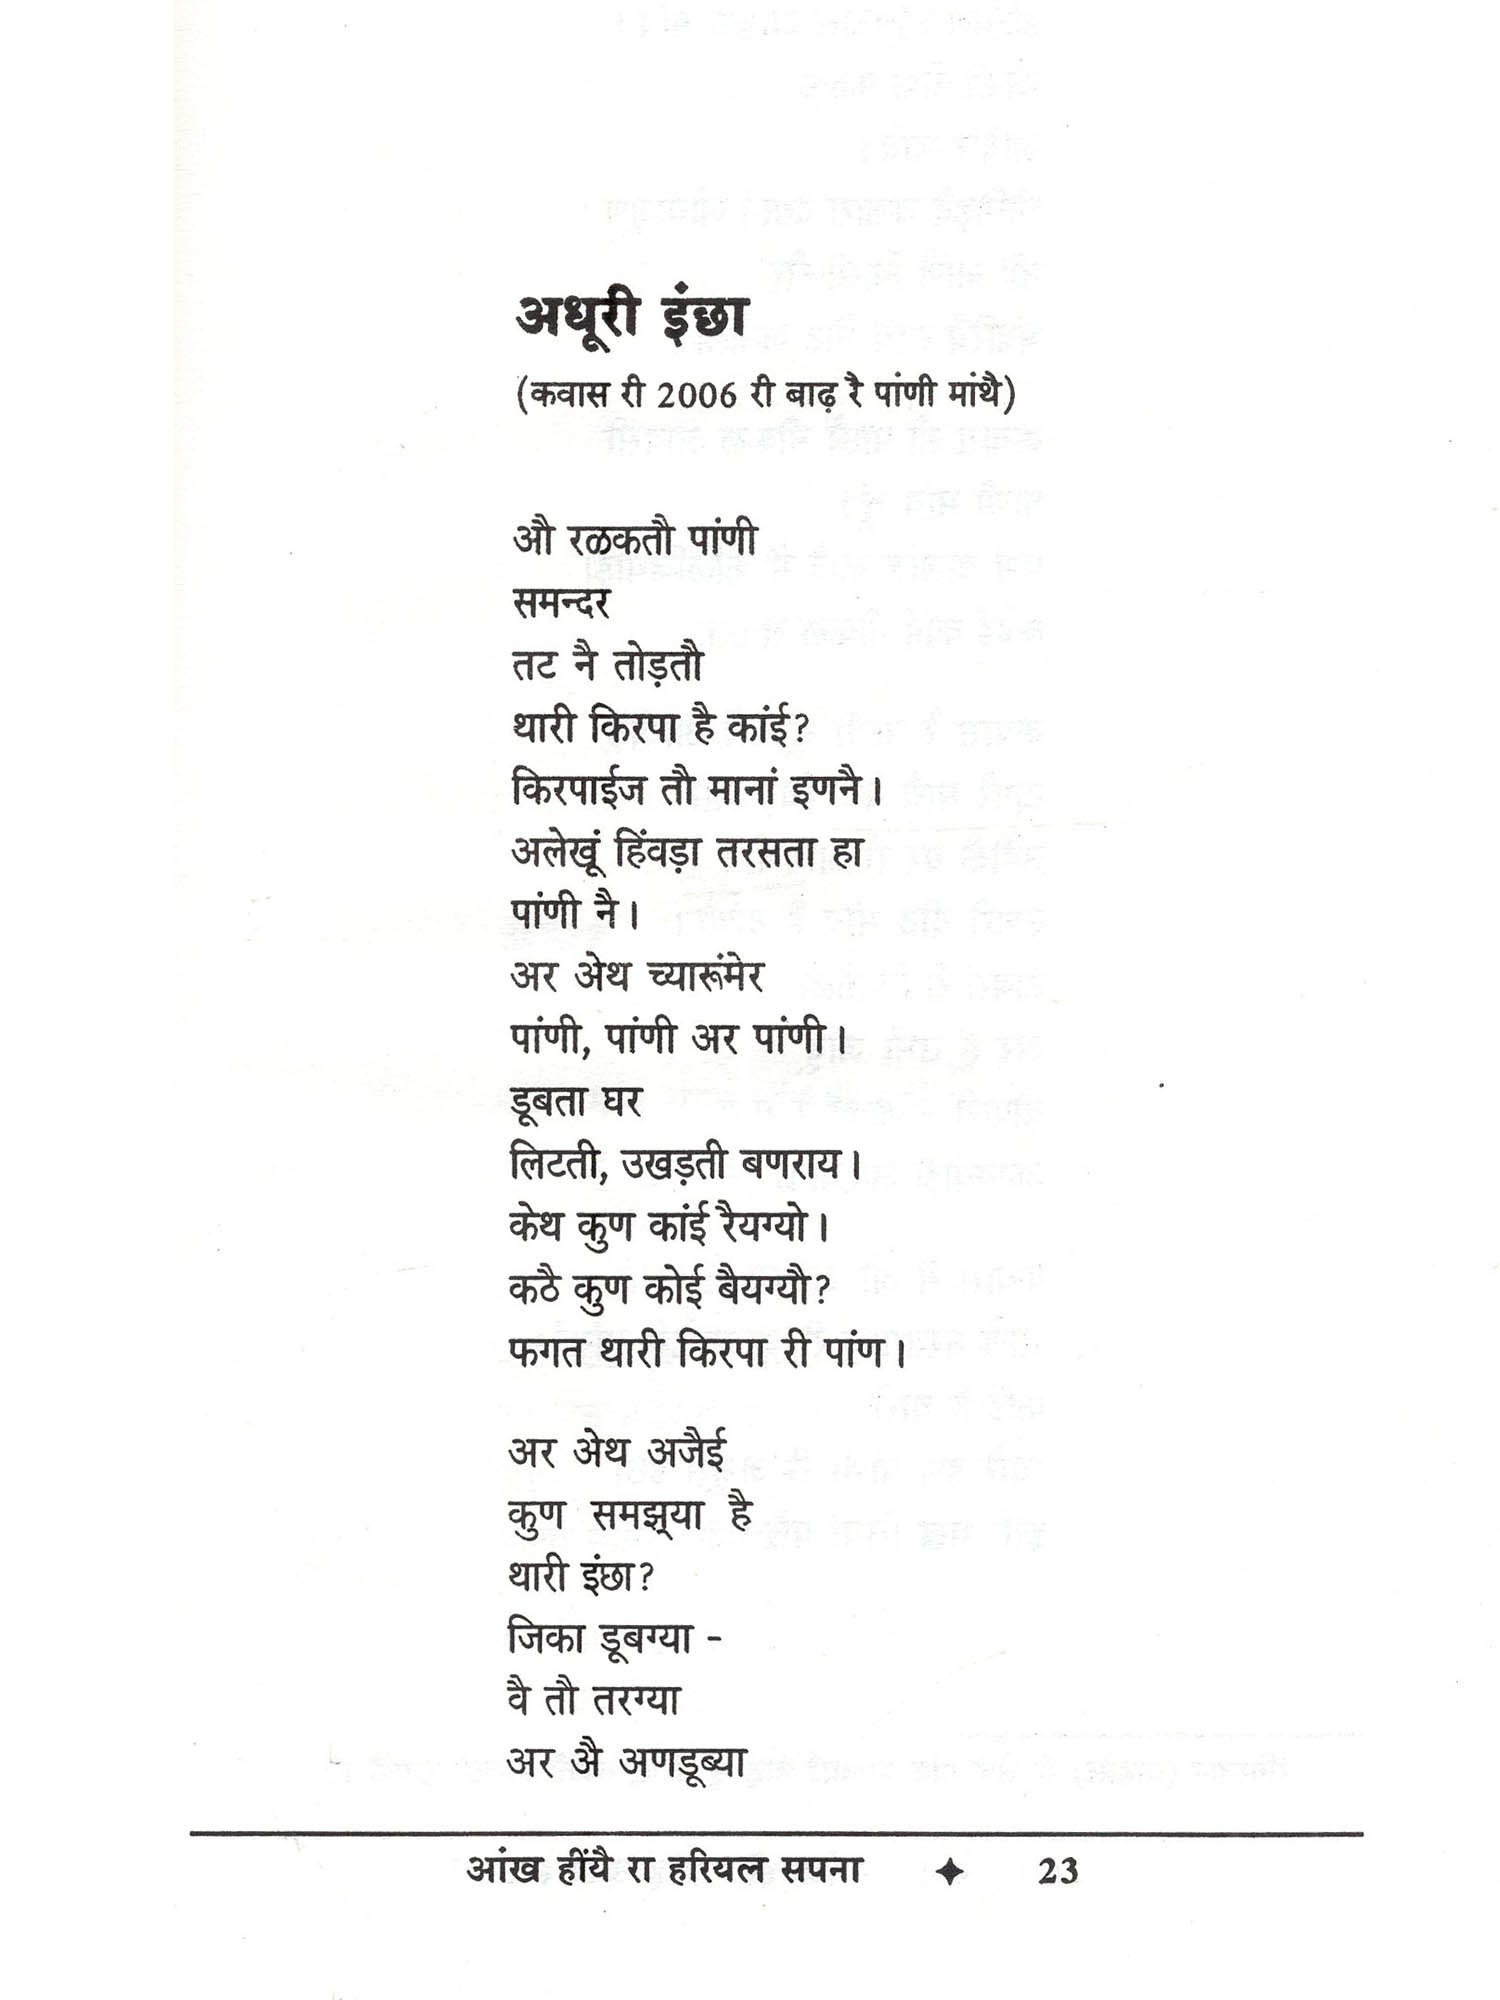 अधूरी इंछा
(कवास री 2006 री बाढ़ रै पांणी मांथै)
औ रळकतौ पांणी
समन्दर
तट नै तोड़तौ
थारी किरपा है कांई?
किरपाईज तौ मानां इणनै।
अलेखूं हिंवड़ा तरसता हा
पांणी नै।
अर अेथ च्यारूंमेर
पांणी, पांणी अर पांणी।
डूबता घर
लिटती, उखड़ती बणराय।
केथ कुण कांई रैयग्यो।
कठै कुण कोई बैयग्यौ?
फगत थारी किरपा री पांण।
अर अेथ अजैई
कुण समझ्या है
थारी इंछा?
जिका डूबग्या -
वै तौ तरग्या
अर अै अणडूब्या
आंख हींयै रा हरियल सपना ✦ 23